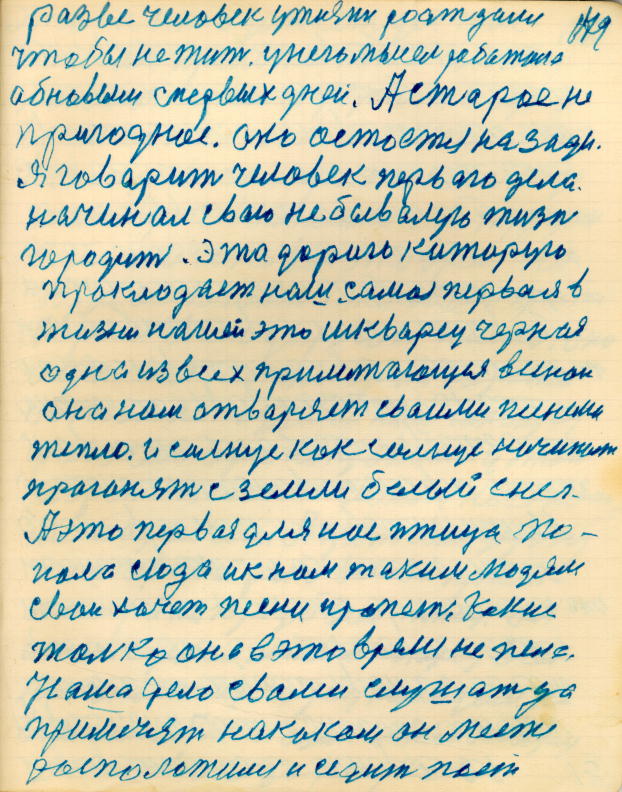 119
разве человек у жизни рождали
чтобы не жит. у него мысел работала
обновыми с первых дней. А старое не
пригодное. оно остается на зади.
Я говорит человек первого дела
начинал свою небывалую жизн
городит. Эта дорога каторую
прокладает наш самая первая в
жизни нашей это шкварец черная
одна из всех прилитающия весной
она нам отваряет сваими песнями
тепло. и солнце как солнце начинает
праганят с земли белый снег.
А это первая для нас птица по-
пала сюда и к нам таким людям
сваи хочет песни пропет. Какие
толко она в это время не пела.
Наша дело сваими слушат да
примечят на каком он месте
росположился и седит поет